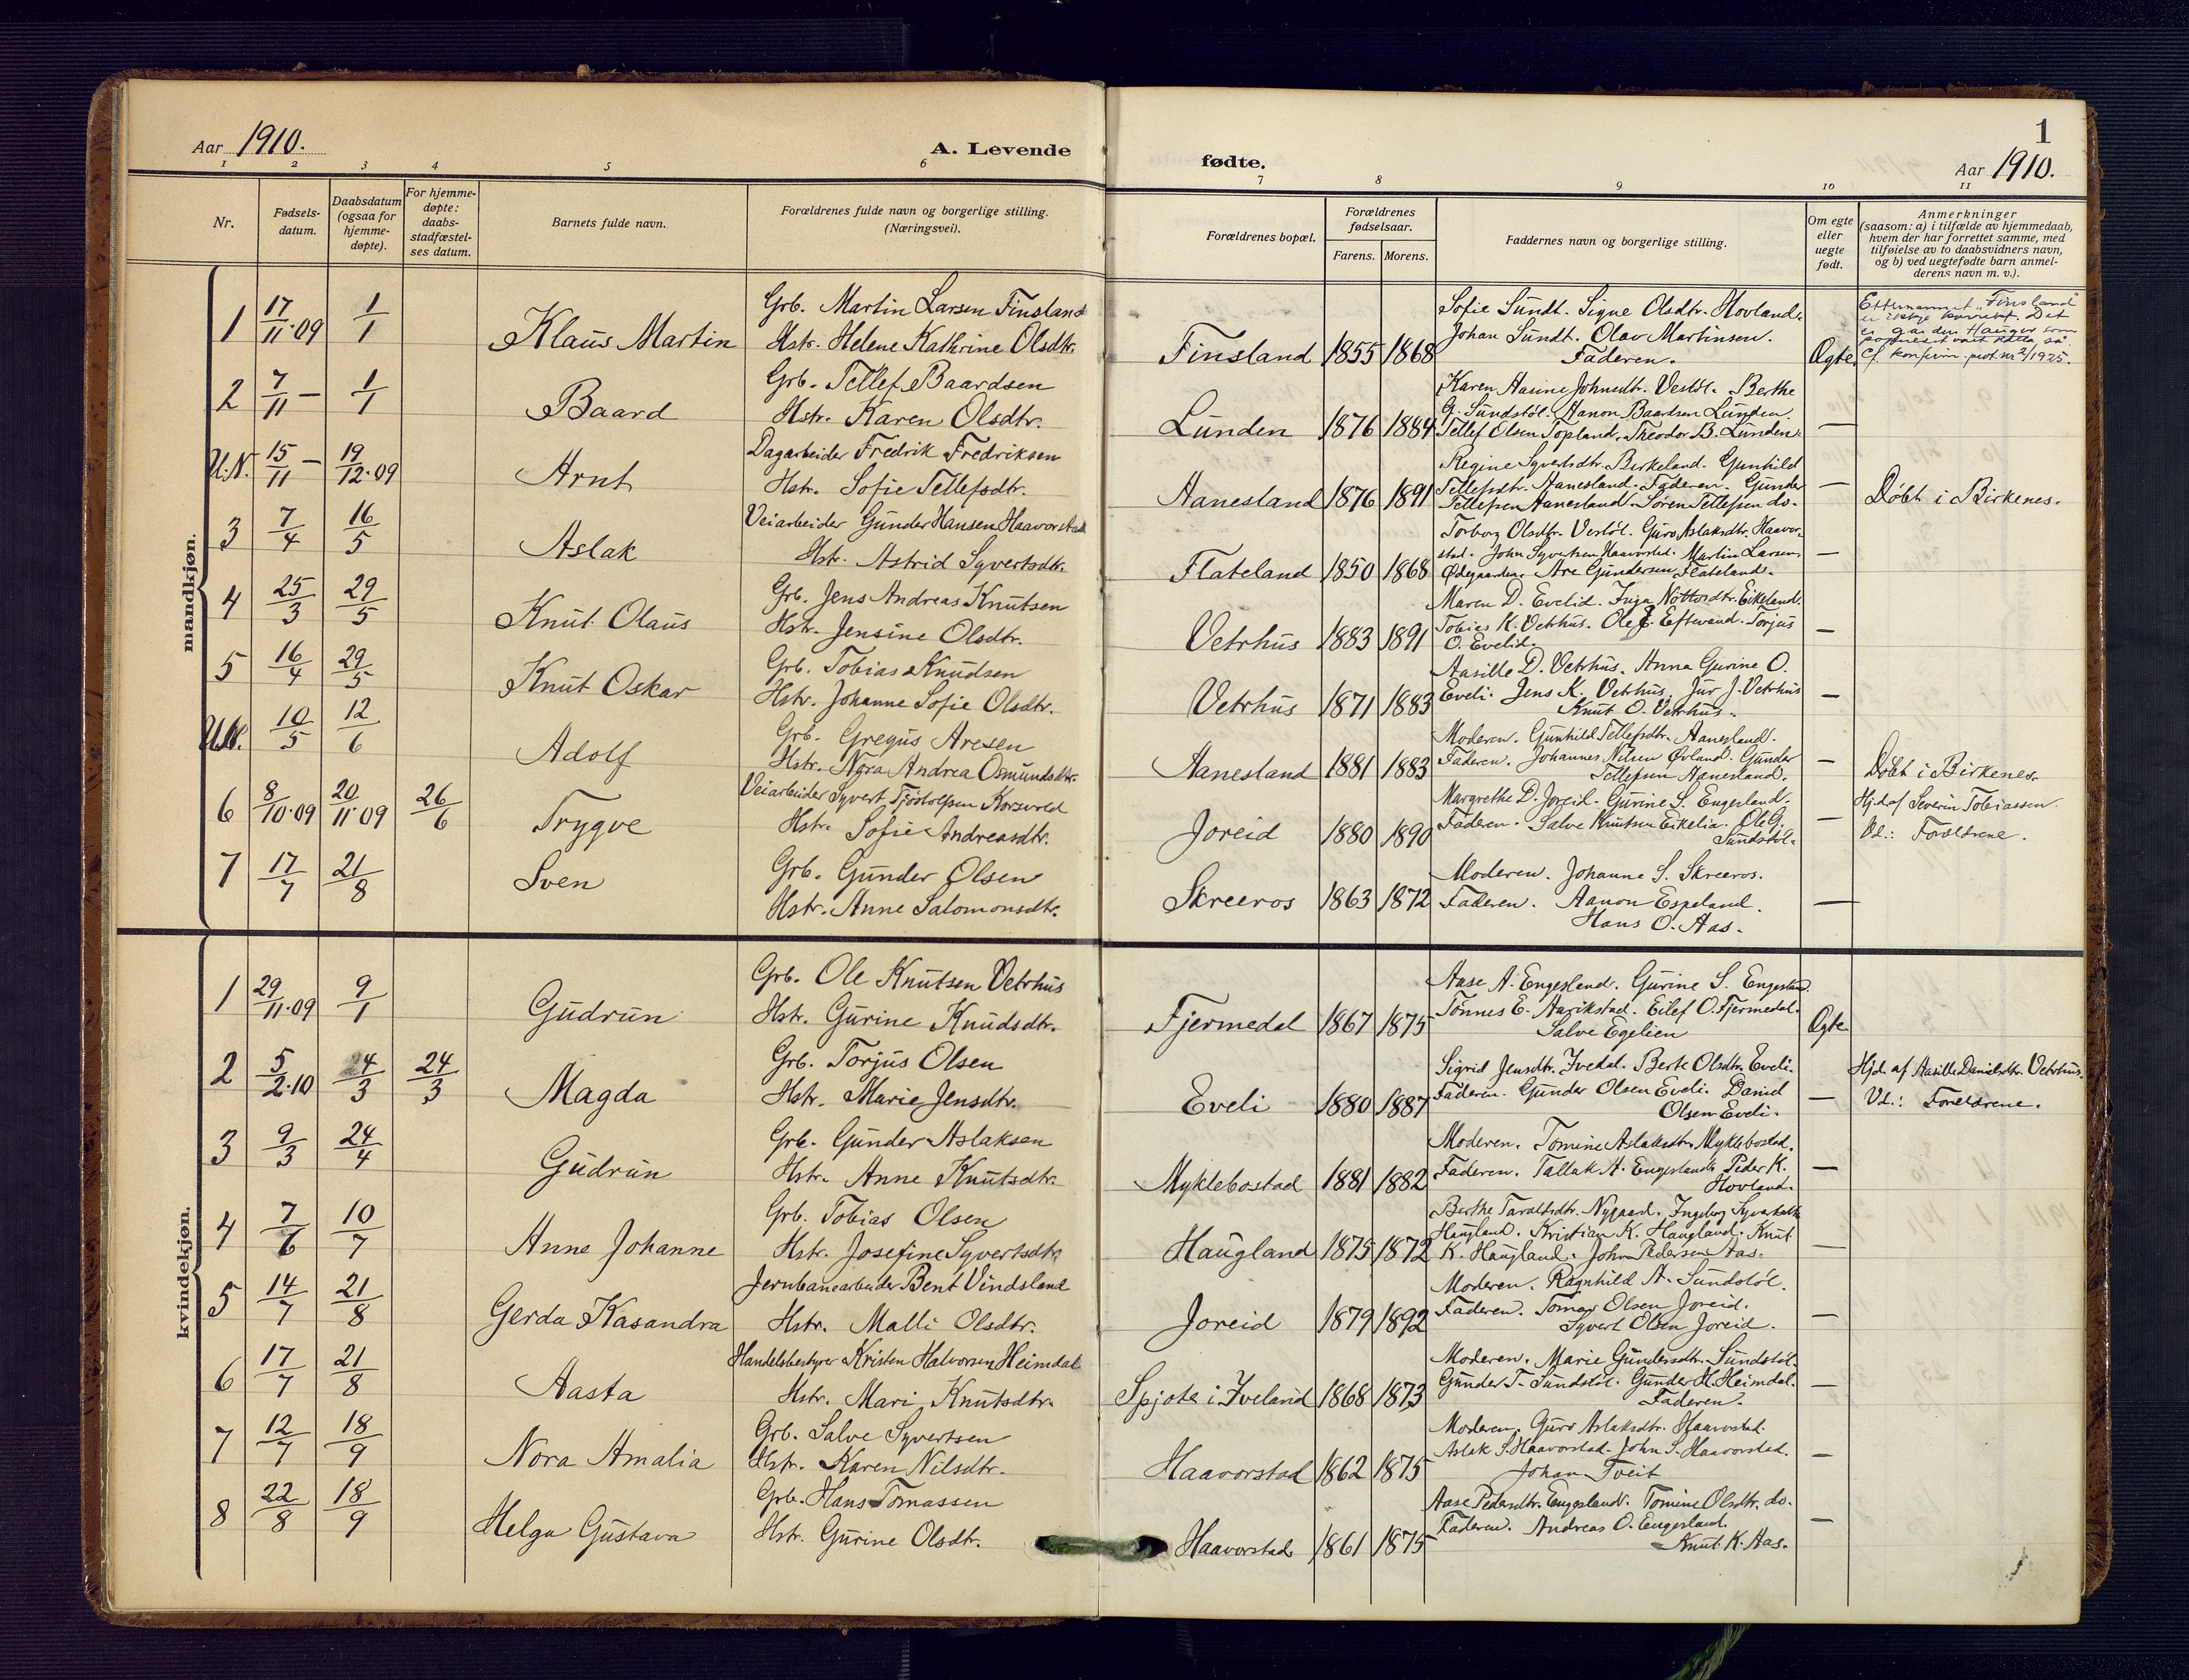 1
Aar 1910.
A. Levende fødte.
Aar 1910.
1 2 3 4 5 6 7 8 9 10 11
Nr.
Fødselsdatum.
Daabsdatum (ogsaa for hjemmedøpte).
For hjemmedøpte: daabsstadfæstelses datum.
Barnets fulde navn.
Forældrenes fulde navn og borgerlige stilling. (Næringsvei).
Forældrenes bopæl.
Forældrenes fødselsaar.
Farens. Morens.
Faddernes navn og borgerlige stilling.
Om egte eller uegte født.
Anmerkninger (saasom: a) i tilfælde av hjemmedaab, hvem der har forrettet samme, med tilføielse av to daabsvidners navn, og b) ved uegtefødte barn anmelderens navn m. v.).
mandkjøn.
1 17/11·09 1/1 Klaus Martin
Grb. Martin Larsen Finsland
Hstr. Helene Kathrine Olsdtr.
Finsland 1855 1868
Sofie Sundt. Signe Olsdtr. Hovland.
Johan Sundt. Olav Martinsen.
Faderen.
Ægte
Etternamnet "Finsland"
er ikkje korrekt. Det
er garden Hauger som
vart kalla så.
Cf. konfirm. prot. nr 2/1925.
2 7/11 — 1/1 Baard
Grb. Tellef Baardsen
Hstr. Karen Olsdtr.
Lunden 1876 1884
Karen Aasine Johnsdtr. Vestöl. Berthe
G. Sundstöl. Aanon Baardsen Lunden.
Tellef Olsen Topland. Theodor B. Lunden.
—
U.N. 15/11 — 19/12·09 Arnt
Dagarbeider Fredrik Fredriksen
Hstr. Sofie Tellefsdtr.
Aanesland 1876 1891
Regine Syvertsdtr. Birkeland. Gunhild
Tellefsdtr. Aanesland. Faderen. Gunder
Tellefsen Aanesland. Sören Tellefsen do.
—
Döbt i Birkenes.
3 7/4 16/5 Aslak
Veiarbeider Gunder Hansen Haavorstad
Hstr. Astrid Syvertsdtr.
Flateland 1850 1868
Torborg Olsdtr. Vestöl. Guro Aslaksdtr. Haavor-
stad. John Syvertsen Haavorstad. Martin Larsen
Ødegaarden. Are Gundersen Flateland.
—
4 25/3 29/5 Knut Olaus
Grb. Jens Andreas Knutsen
Hstr. Jensine Olsdtr.
Vetrhus 1883 1891
Maren D. Evelid. Inga Nottovdtr. Eikeland.
Tobias K. Vetrhus. Ole J. Eftevand. Torjus
O. Evelid.
—
5 16/4 29/5 Knut Oskar
Grb. Tobias Knudsen
Hstr. Johanne Sofie Olsdtr.
Vetrhus 1871 1883
Aasille D. Vetrhus. Anna Gurine O.
Eveli. Jens K. Vetrhus. Jur J. Vetrhus
Knut O. Vetrhus.
—
U.N. 10/5 12/6 Adolf
Grb. Gregus Aresen
Hstr. Nora Andrea Osmundsdtr.
Aanesland 1881 1883
Moderen. Gunhild Tellefsdtr. Aanesland.
Faderen. Johannes Nilsen Øvland. Gunder
Tellefsen Aanesland.
—
Döbt i Birkenes.
6 8/10·09 20/11·09 26/6 Trygve
Veiarbeider Syvert Tjöstolfsen Korsveld
Hstr. Sofie Andreasdtr.
Joreid 1880 1890
Margrethe D. Joreid. Gurine S. Engesland.
Faderen. Salve Knutsen Eikelia. Ole G.
Sundstöl.
—
Hjd. af Severin Tobiassen.
Vd.: Forældrene.
7 17/7 21/8 Sven
Grb. Gunder Olsen
Hstr. Anne Salomonsdtr.
Skreeros 1863 1872
Moderen. Johanne S. Skreeros.
Faderen. Aanon Espeland.
Hans O. Aas.
—
kvindekjøn.
1 29/11·09 9/1 Gudrun
Grb. Ole Knutsen Vetrhus
Hstr. Gurine Knudsdtr.
Fjermedal 1867 1875
Aase A. Engesland. Gurine S. Engesland.
Tönnes E. Aarikstad. Eilef O. Fjermedal.
Salve Egelien
Ægte
2 5/2·10 24/3 24/3 Magda
Grb. Torjus Olsen
Hstr. Marie Jensdtr.
Eveli 1880 1887
Sigrid Jensdtr. Ivedal. Berte Olsdtr. Eveli.
Faderen. Gunder Olsen Eveli. Daniel
Olsen Eveli.
—
Hjd. af Aasille Danielsdtr. Vetrhus.
Vd.: Forældrene.
3 9/3 24/4 Gudrun
Grb. Gunder Aslaksen
Hstr. Anne Knutsdtr.
Myklebostad 1881 1882
Moderen. Tomine Aslaksdtr. Myklebostad.
Faderen. Tallak A. Engesland. Peder K.
Hovland.
—
4 7/6 10/7 Anne Johanne
Grb. Tobias Olsen
Hstr. Josefine Syvertsdtr.
Haugland 1875 1872
Berthe Taraldsdtr. Nygaard. Ingeborg Syvertsdtr.
Haugland. Kristian K. Haugland. Knut
K. Haugland. John Pedersen Aas.
—
5 14/7 21/8 Gerda Kasandra
Jernbanearbeider Bent Vindsland
Hstr. Malli Olsdtr.
Joreid 1879 1892
Moderen. Ragnhild A. Sundstöl.
Faderen. Tomas Olsen Joreid.
Syvert Olsen Joreid.
—
6 17/7 21/8 Aasta
Handelsbestyrer Kristen Halvorsen Heimdal
Hstr. Mari Knutsdtr.
Spjote i Iveland 1868 1873
Moderen. Marie Gundersdtr. Sundstöl.
Gunder T. Sundstöl. Gunder H. Heimdal.
Faderen.
—
7 12/7 18/9 Nora Amalia
Grb. Salve Syvertsen
Hstr. Karen Nilsdtr.
Haavorstad 1862 1875
Moderen. Guro Aslaksdtr. Haavorstad.
Aslak S. Haavorstad. John S. Haavorstad.
Johan Tveit
—
8 22/8 18/9 Helga Gustava
Grb. Hans Tomassen
Hstr. Gurine Olsdtr.
Haavorstad 1861 1875
Aase Pedersdtr. Engesland. Tomine Olsdtr. do.
Faderen. Andreas O. Engesland.
Knut K. Aas.
—